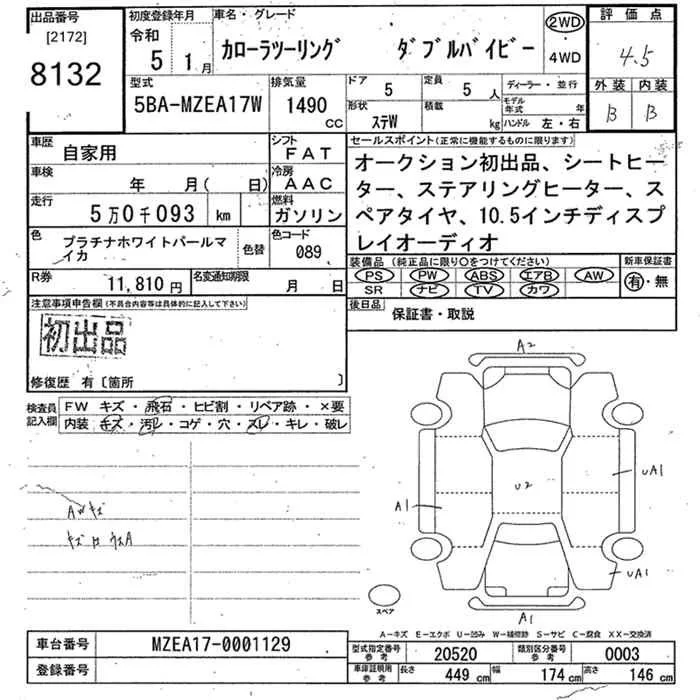 出品番号
[2172]
8132
初度登録年月
令和
5 1月
車名・グレード
カローラツーリング ダブルバイビー
2WD
4WD
評価点
4.5
外装 内装
B B
型式
5BA-MZEA17W
排気量
1490 CC
ドア
5
定員
5 人
形状
ステW
積載
kg
ディーラー・並行
モデル年式 年
ハンドル 左・右
車歴
自家用
シフト
FAT
車検
年 月( 日)
冷房
AAC
走行
5万0千093 km
燃料
ガソリン
色
プラチナホワイトパールマイカ
色替
色コード
089
R券
11,810円
名変通知期限
月 日
セールスポイント(正常に機能するものに限ります)
オークション初出品、シートヒー
ター、ステアリングヒーター、ス
ペアタイヤ、10.5インチディスプ
レイオーディオ
装備品(純正品に限り○をつけてください)
PS PW ABS エアB AW
SR ナビ TV カワ
新車保証書
有・無
後日品
保証書・取説
注意事項申告欄(不具合内容等は具体的に記入して下さい)
初出品
修復歴 有〔箇所 〕
検査員記入欄
FW キズ・飛石・ヒビ割・リペア跡・×要
内装 キズ・汚レ・コゲ・穴・スレ・キレ・破レ
AWキズ
A2
U2
UA1
A1
UA1
A1
スペア
A-キズ E-エクボ U-凹み W-補修跡 S-サビ C-腐食 XX-交換済
車台番号
MZEA17-0001129
登録番号
型式指定番号参考
20520
類別区分番号参考
0003
車庫証明用参考
長さ 449 cm 幅 174 cm 高さ 146 cm